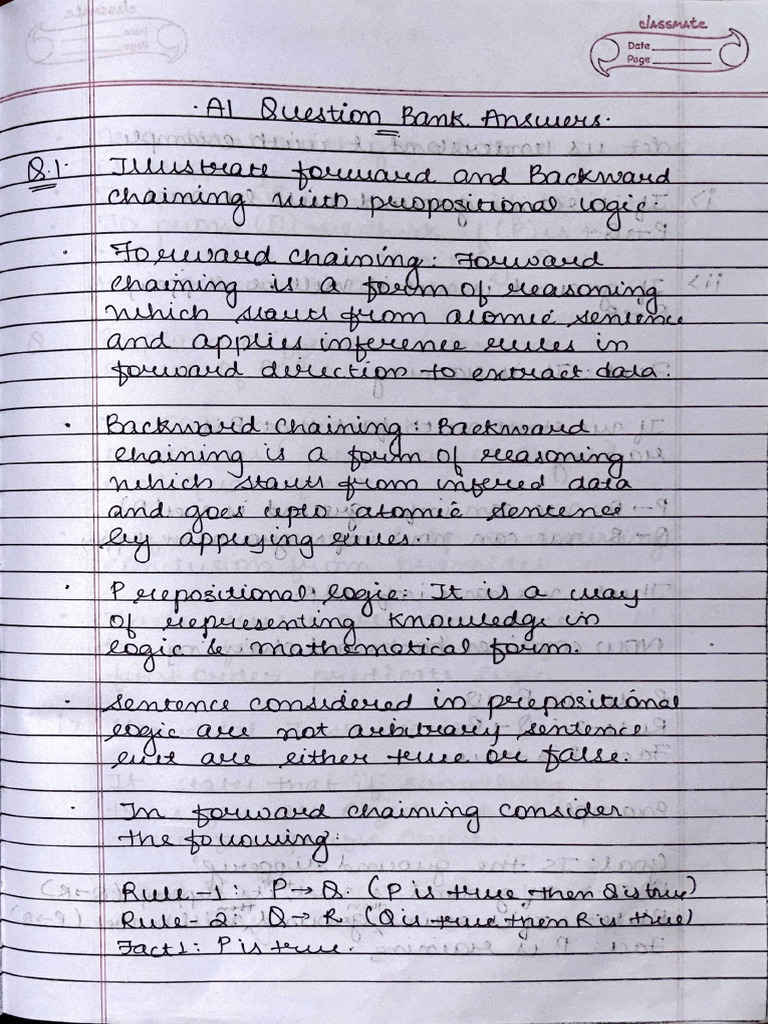 classmate
Date
Page
· AI Question Bank Answers.
Q.1· Illustrate forward and Backward
chaining with propositional logic.
· Forward chaining: Forward
chaining is a form of reasoning
which starts from atomic sentence
and applies inference rules in
forward direction to extract data.
· Backward chaining: Backward
chaining is a form of reasoning
which starts from infered data
and goes upto atomic sentence
by applying rules.
· Prepositional logic: It is a way
of representing knowledge in
logic & mathematical form.
· Sentence considered in prepositional
logic are not arbitrary sentence
but are either true or false.
· In forward chaining consider
the following:
Rule-1: P→Q. (P is true then Q is true)
Rule-2: Q→R (Q is true then R is true)
Fact 1: P is true.